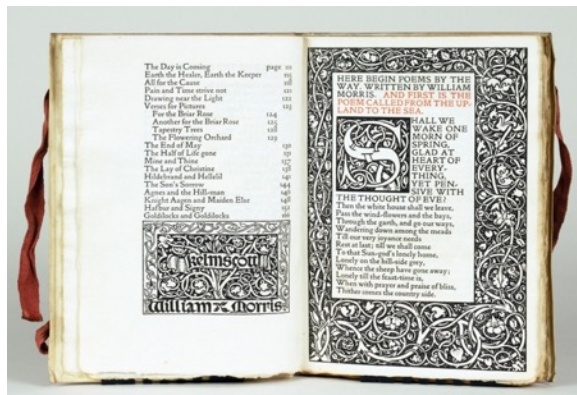 The Day is Coming page
Earth the Healer, Earth the Keeper 115
All for the Cause 118
Pain and Time strive not 121
Drawing near the Light 122
Verses for Pictures 123
For the Briar Rose 124
Another for the Briar Rose 125
Tapestry Trees
The Flowering Orchard 129
The End of May 131
The Half of Life gone
Mine and Thine 137
The Lay of Christine 138
Hildebrand and Hellelil 141
The Son's Sorrow 144
Agnes and the Hill-man
Knight Aagen and Maiden Else 148
Hafbur and Signy 151
Goldilocks and Goldilocks
Kelmscott
William Morris
HERE BEGIN POEMS BY THE
WAY. WRITTEN BY WILLIAM
MORRIS. AND FIRST IS THE
POEM CALLED FROM THE UP-
LAND TO THE SEA.
SHALL WE
WAKE ONE
MORN OF
SPRING,
GLAD AT
HEART OF
EVERY-
THING,
YET PEN-
SIVE WITH
THE THOUGHT OF EVE?
Then the white house shall we leave,
Pass the wind-flowers and the bays,
Through the garth, and go our ways,
Wandering down among the meads
Till our very joyance needs
Rest at last; till we shall come
To that Sun-god's lonely home,
Lonely on the hill-side grey,
Whence the sheep have gone away;
Lonely till the feast-time is,
When with prayer and praise of bliss,
Thither comes the country side.